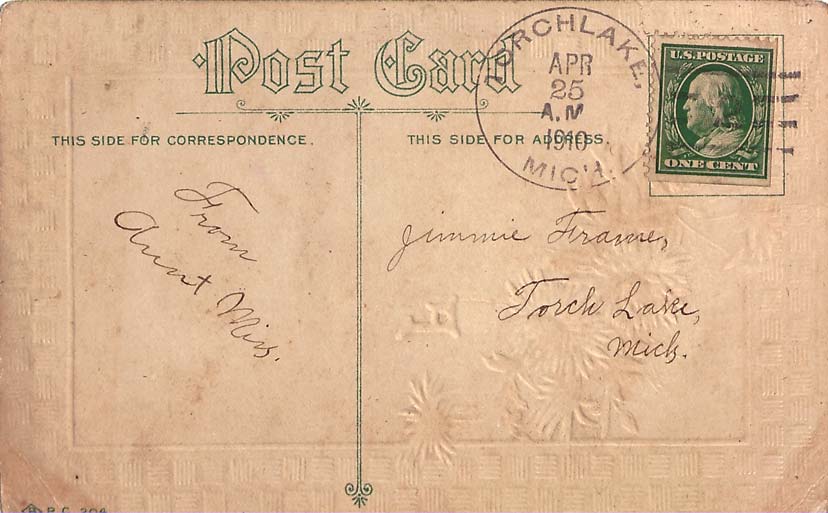 Post Card
THIS SIDE FOR CORRESPONDENCE.
THIS SIDE FOR ADDRESS.
TORCHLAKE,
APR
25
A.M
1910
MICH.
U.S. POSTAGE
ONE CENT
From
Aunt Miss.
Jimmie Frame,
Torch Lake,
Mich.
P.C. 204